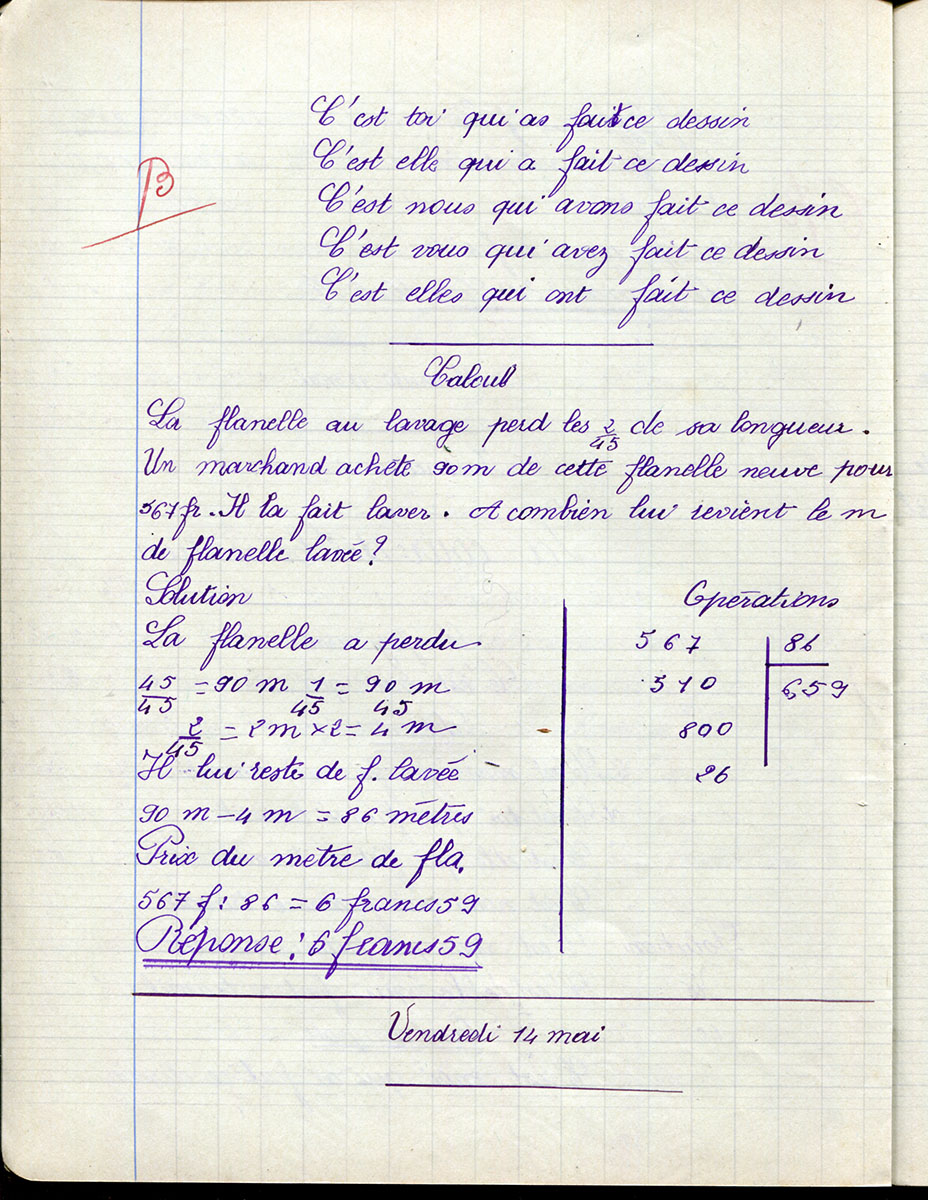 C'est toi qui as fait ce dessin
C'est elle qui a fait ce dessin
B
C'est nous qui avons fait ce dessin
C'est vous qui avez fait ce dessin
C'est elles qui ont fait ce dessin
Calcul
La flanelle au lavage perd les 2/45 de sa longueur.
Un marchand achète 90m de cette flanelle neuve pour
567 fr. Il la fait laver. A combien lui revient le m
de flanelle lavée?
Solution
La flanelle a perdu
45/45 = 90 m 1/45 = 90 m/45
2/45 = 2m × 2 = 4 m
Il lui reste de f. lavée
90 m – 4 m = 86 mètres
Prix du mètre de fla.
567 f : 86 = 6 francs 59
Réponse : 6 francs 59
Opérations
567 86
510 6,59
800
26
Vendredi 14 mai